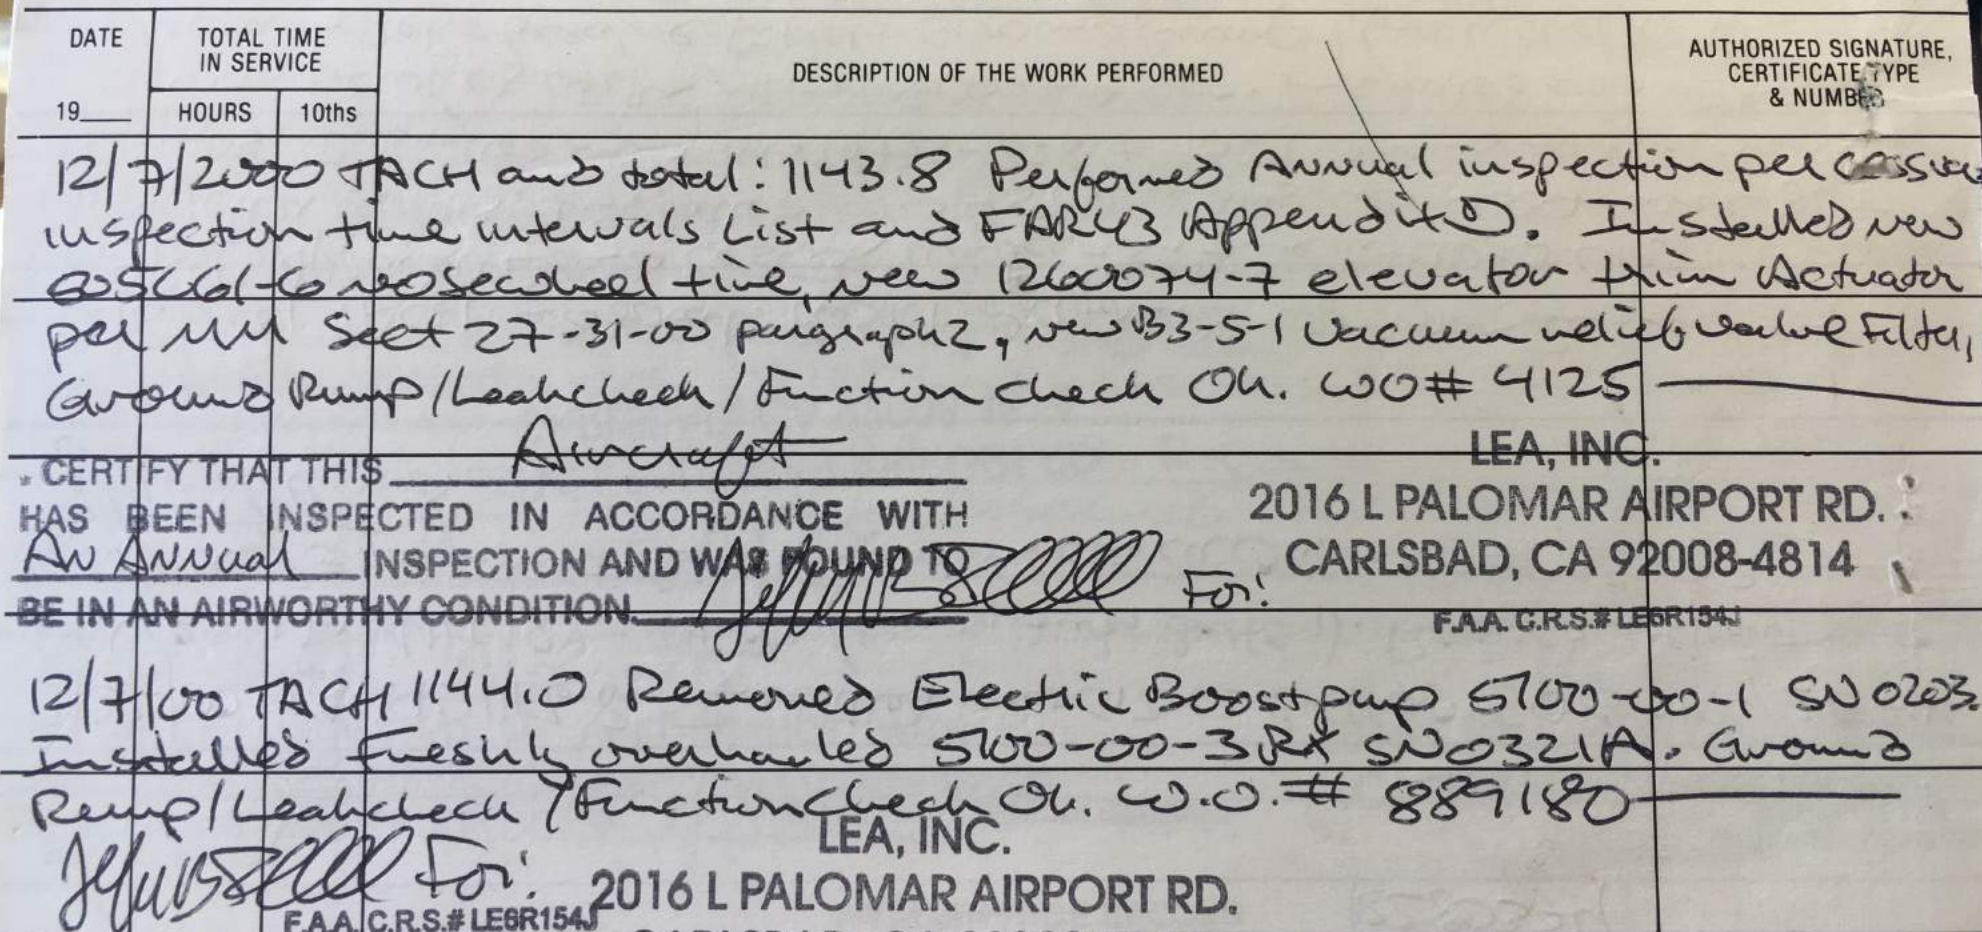 DATE
TOTAL TIME
IN SERVICE
DESCRIPTION OF THE WORK PERFORMED
AUTHORIZED SIGNATURE,
CERTIFICATE TYPE
& NUMBER
19
HOURS
10ths
12/7/2000 TACH and total: 1143.8 Performed Annual inspection per Cessna
inspection time intervals List and FAR43 Appendix D. Installed new
nosewheel tire, new 1260074-7 elevator trim Actuator
per MM Sect 27-31-00 paragraph 2, new B3-5-1 vacuum relief valve Filter,
Ground Runup/Leakcheck/Function check Ok. WO# 4125
CERTIFY THAT THIS Aircraft
HAS BEEN INSPECTED IN ACCORDANCE WITH
An Annual INSPECTION AND WAS FOUND TO
BE IN AN AIRWORTHY CONDITION.
For:
LEA, INC.
2016 L PALOMAR AIRPORT RD.
CARLSBAD, CA 92008-4814
F.A.A. C.R.S.# LE6R154J
12/7/00 TACH 1144.0 Removed Electric Boostpump 5100-00-1 SN 0203.
Installed Freshly overhauled 5100-00-3 RX SN0321A. Ground
Runup/Leakcheck/Functioncheck Ok. W.O.# 889180
For:
LEA, INC.
2016 L PALOMAR AIRPORT RD.
F.A.A. C.R.S.# LE6R154J